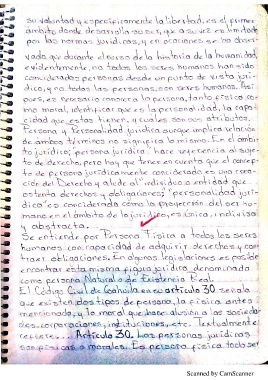 su voluntad y específicamente la libertad, es el primer
ámbito donde desarrolla su ser, que a su vez es limitado
por las normas jurídicas, y en ocasiones se ha obser-
vado que durante el curso de la historia de la humanidad,
evidentemente, no todos los seres humanos han sido
considerados personas desde un punto de vista jurí-
dico, y no todas las personas, son seres humanos. Así
pues, es necesario conocer a la persona, tanto física co-
mo moral, identificar que es la personalidad, la capa-
cidad que estas tienen, y cuales son sus atributos.
Persona y Personalidad jurídica aunque implica relación
de ámbos términos no significa lo mismo. En el ámbi-
to jurídico "persona jurídica" hace referencia al suje-
to de derecho, pero hay que tener en cuenta que el concep-
to de persona jurídicamente considerado es una crea-
ción del Derecho y alude al individuo o entidad que
ostenta derechos y obligaciones; "personalidad jurí-
dica" es considerada como la proyección del ser hu-
mano en el ámbito de lo jurídico, es única, indivisa
y abstracta.
Se entiende por Persona Física a todos los seres
humanos con capacidad de adquirir derechos y con-
traer obligaciones. En algunas legislaciones es posible
encontrar esta misma figura jurídica denominada
como persona Natural o de Existencia Real.
El Código Civil de Coahuila en su artículo 30 señala
que existen dos tipos de persona, la física antes
mencionada, y la moral que hace alusión a las socieda-
des, corporaciones, instituciones, etc. Textualmente
refiere... Artículo 30. Las personas jurídicas
son físicas o morales. Es persona física todo ser
Scanned by CamScanner